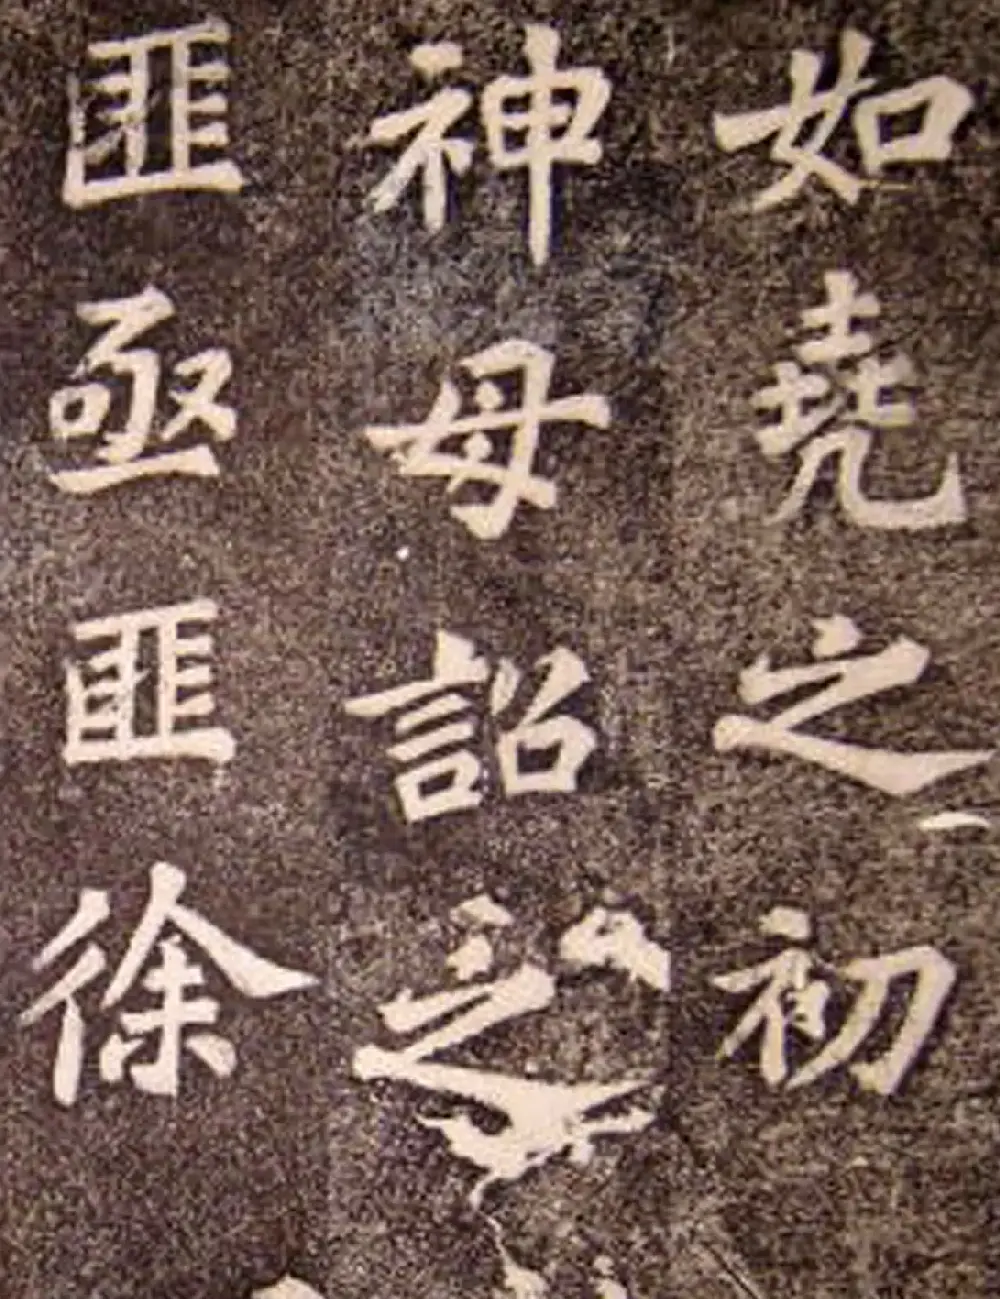 如堯之初
神母詔之
匪亟匪徐